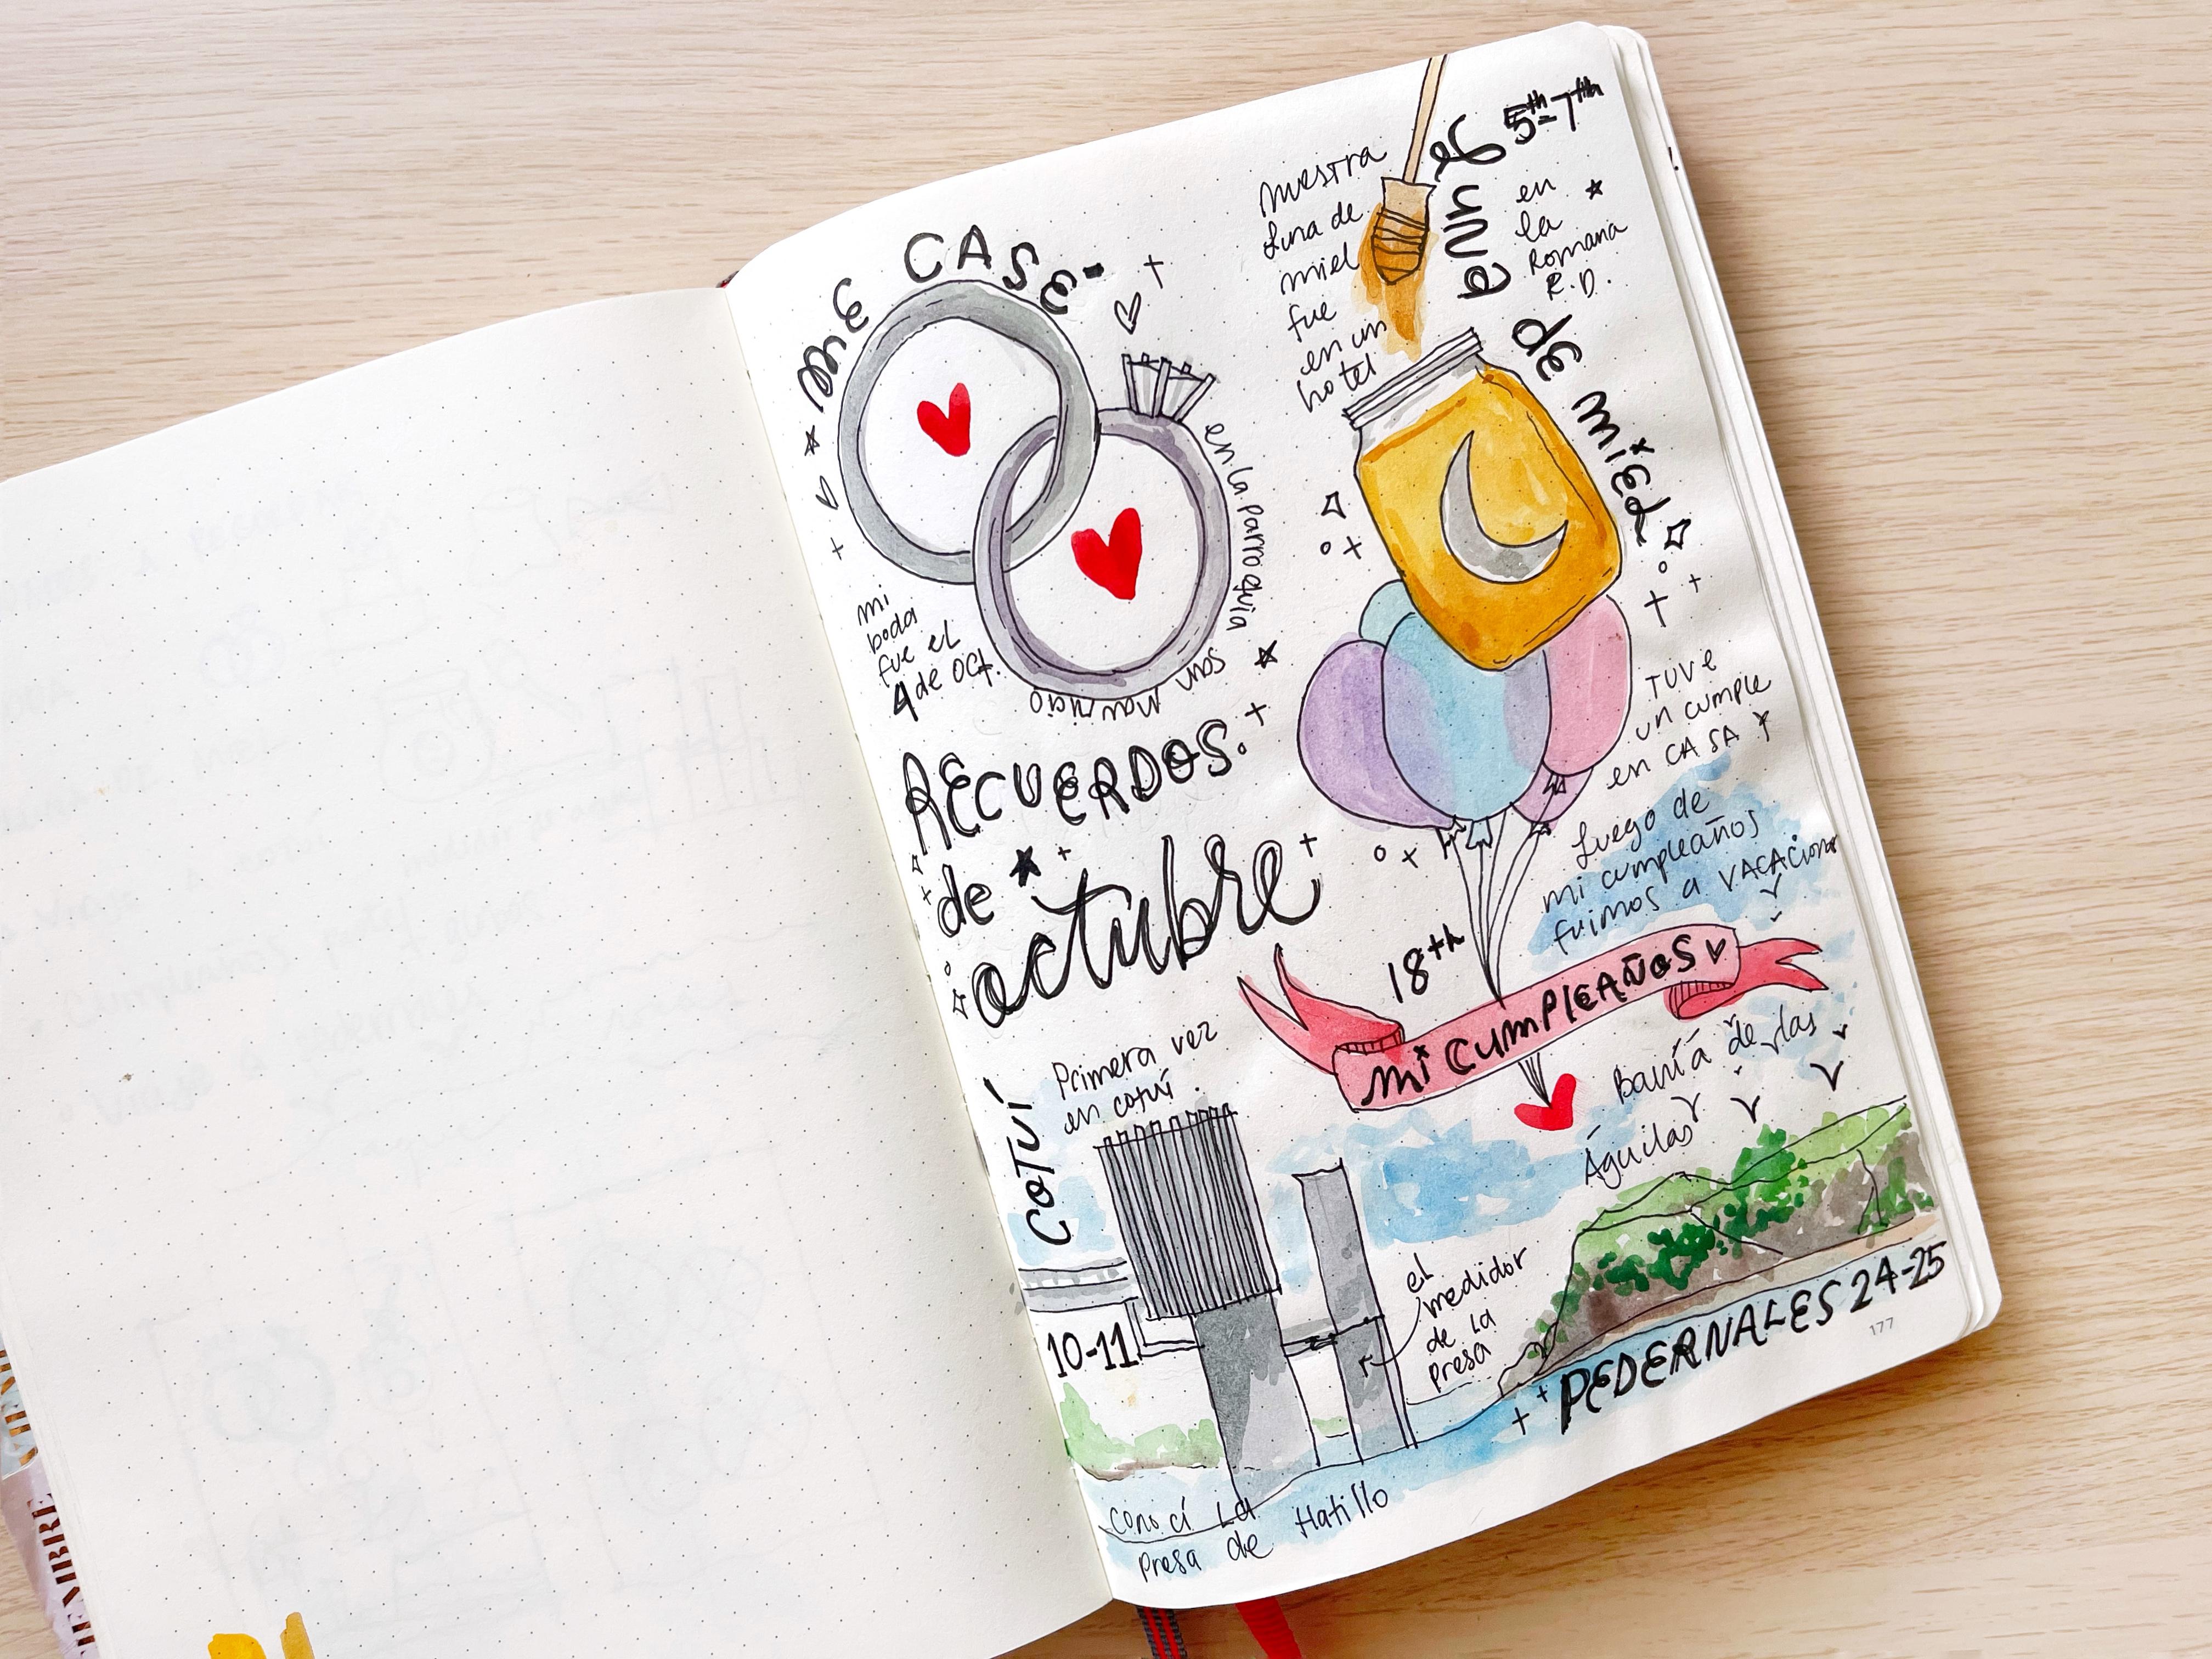 ME CASÉ
mi
boda
fue el
4 de OCT.
en la parroquia
San Mauricio
nuestra
Luna de
miel
fue
en un
hotel
Luna de miel
5th-7th
en
la
Romana
R.D.
RECUERDOS
de
octubre
TUVE
un cumple
en CASA Y
Luego de
mi cumpleaños
fuimos a VACACionar
18th
mi CUMPLEAÑOS
COTUÍ
Primera vez
en cotuí
10-11
el
medidor
de la
presa
conocí La
presa de Hatillo
Bahía de las
Águilas
PEDERNALES 24-25
177